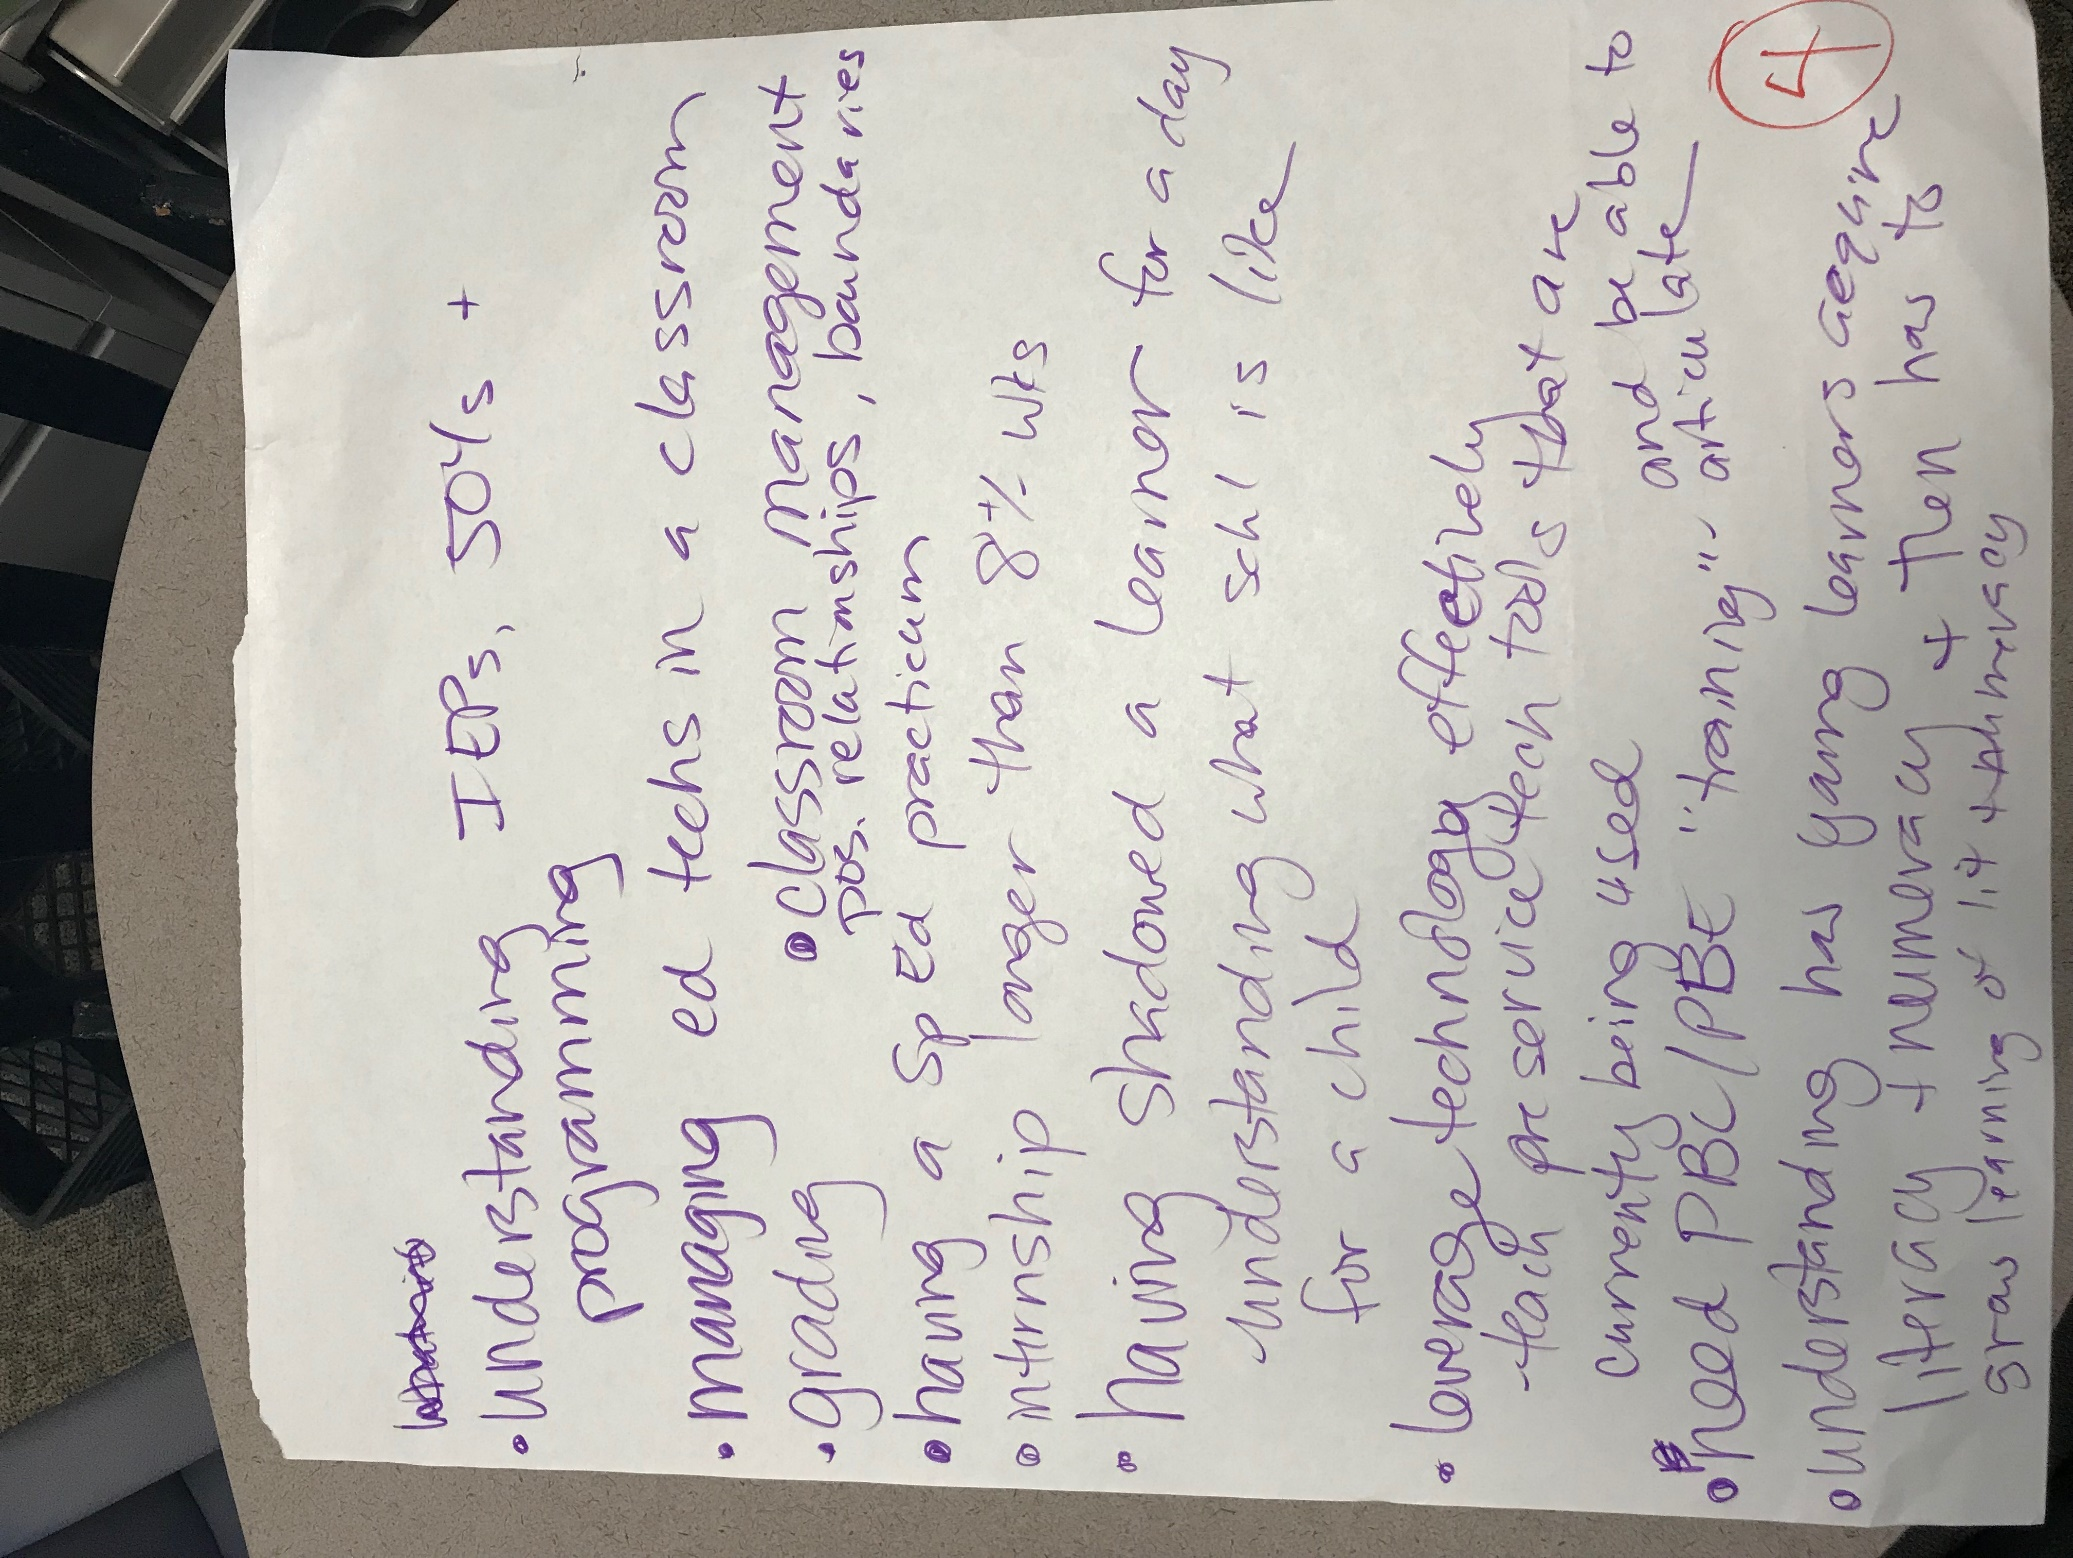 • understanding IEPs, 504s +
programming
• managing ed techs in a classroom
• grading
• classroom management
pos. relationships, boundaries
• having a Sp Ed practicum
• internship longer than 8 +/- wks
• having shadowed a learner for a day
- understanding what schl is like
for a child
• leverage technology effectively
- teach pre service tech tools that are
currently being used
• need PBL/PBE "training" - and be able to
articulate
• understanding how young learners acquire
literacy + numeracy + then how to
grow learning of lit + numeracy
4